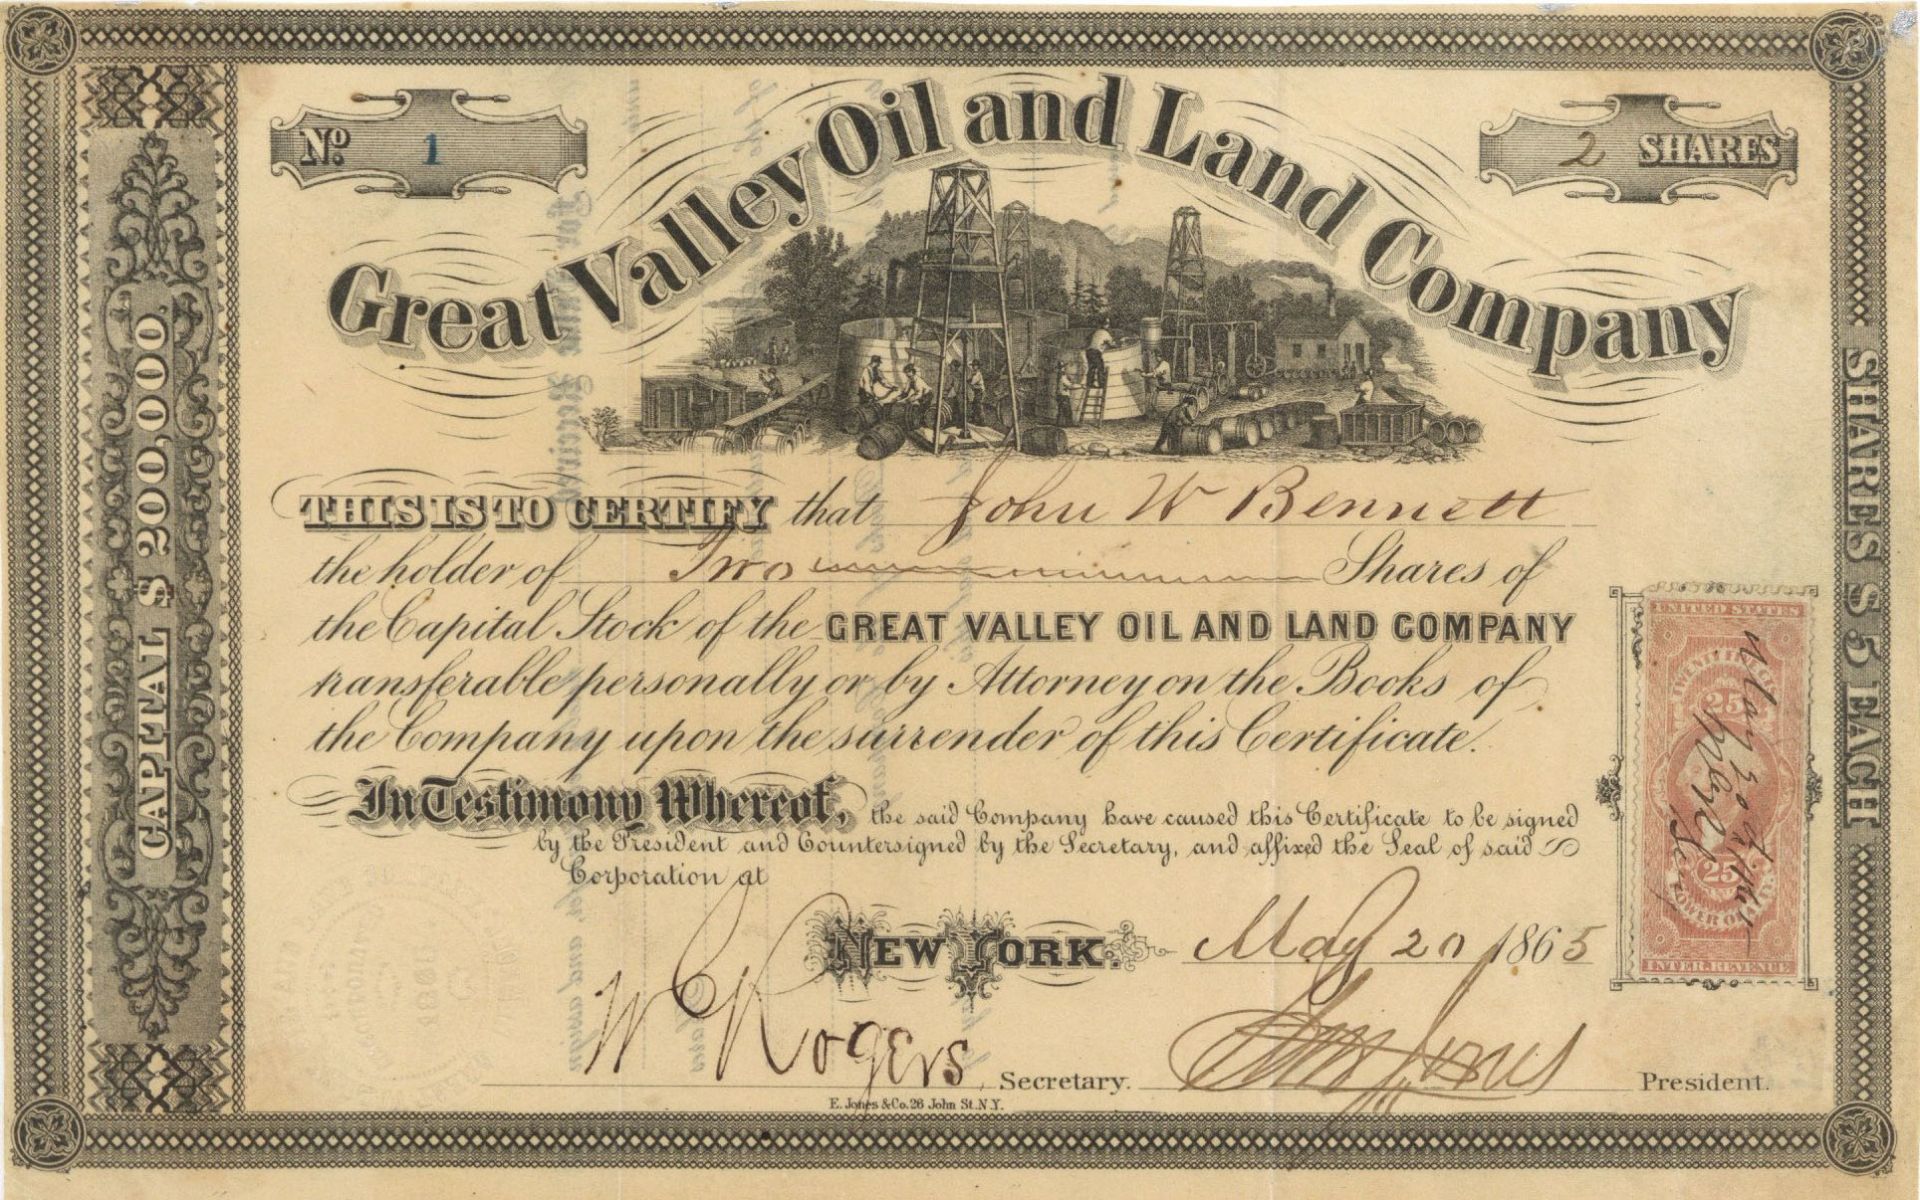 No. 1
2 SHARES
Great Valley Oil and Land Company
CAPITAL $200,000.
SHARES $5 EACH
THIS IS TO CERTIFY that John W Bennett
the holder of Two Shares of
the Capital Stock of the GREAT VALLEY OIL AND LAND COMPANY
transferable personally or by Attorney on the Books of
the Company upon the surrender of this Certificate.
In Testimony Whereof, the said Company have caused this Certificate to be signed
by the President and Countersigned by the Secretary, and affixed the Seal of said
Corporation at
NEW YORK. May 20 1865
W Rogers Secretary.
Jones President.
E. Jones & Co. 26 John St. N.Y.
UNITED STATES
TWENTY FIVE
25
25
POWER OF ATTY.
INTER. REVENUE
May 20